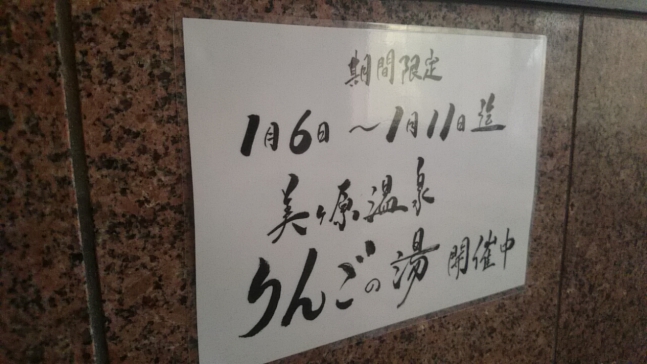 期間限定
1月6日～1月11日迄
美ヶ原温泉
りんごの湯 開催中